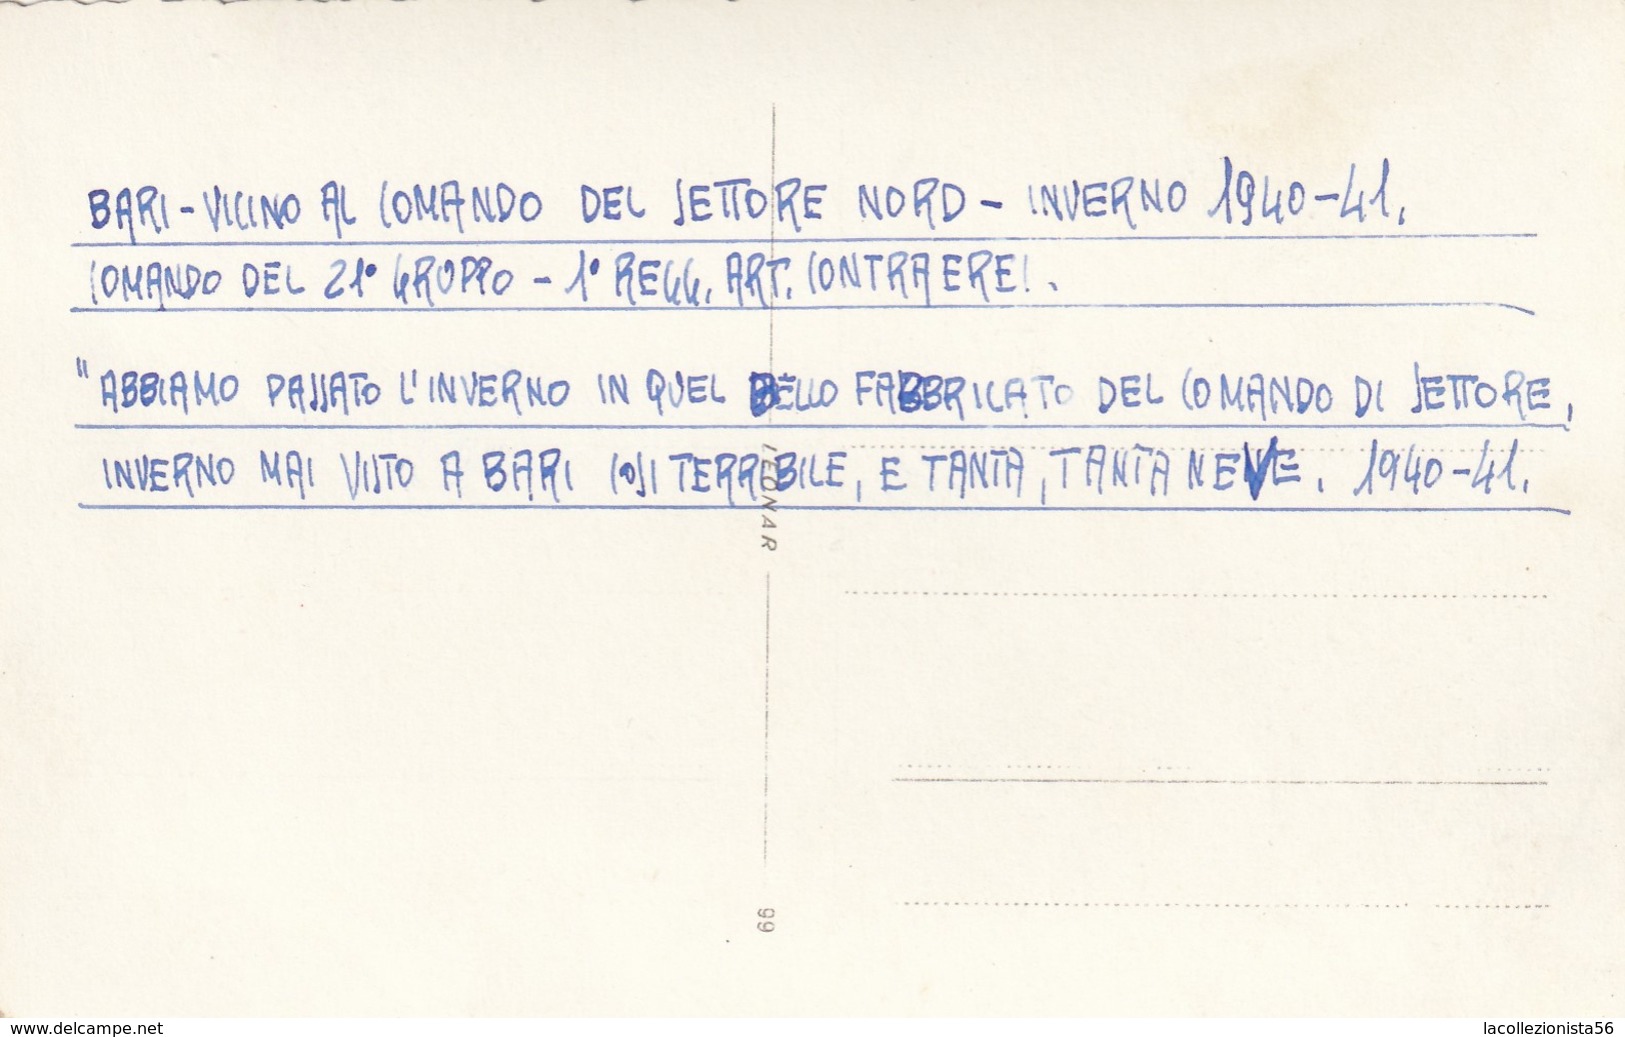 BARI - VICINO AL COMANDO DEL SETTORE NORD - INVERNO 1940-41.
COMANDO DEL 21° GRUPPO - 1° REGG. ART. CONTRAEREI.
"ABBIAMO PASSATO L'INVERNO IN QUEL BELLO FABBRICATO DEL COMANDO DI SETTORE,
INVERNO MAI VISTO A BARI COSI TERRIBILE, E TANTA, TANTA NEVE. 1940-41.
LEONAR
99
www.delcampe.net
lacollezionista56